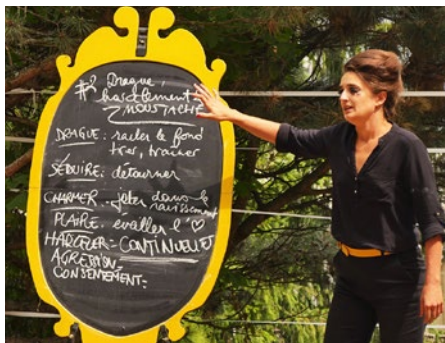 #2 Drague,
harcèlement
MOUSTACHE
DRAGUE: racler le fond
tirer, traîner
SÉDUIRE: détourner
CHARMER: jeter dans le
ravissement
PLAIRE: éveiller l' ♡
HARCELER = CONTINUELLE
AGRESSION =
CONSENTEMENT =